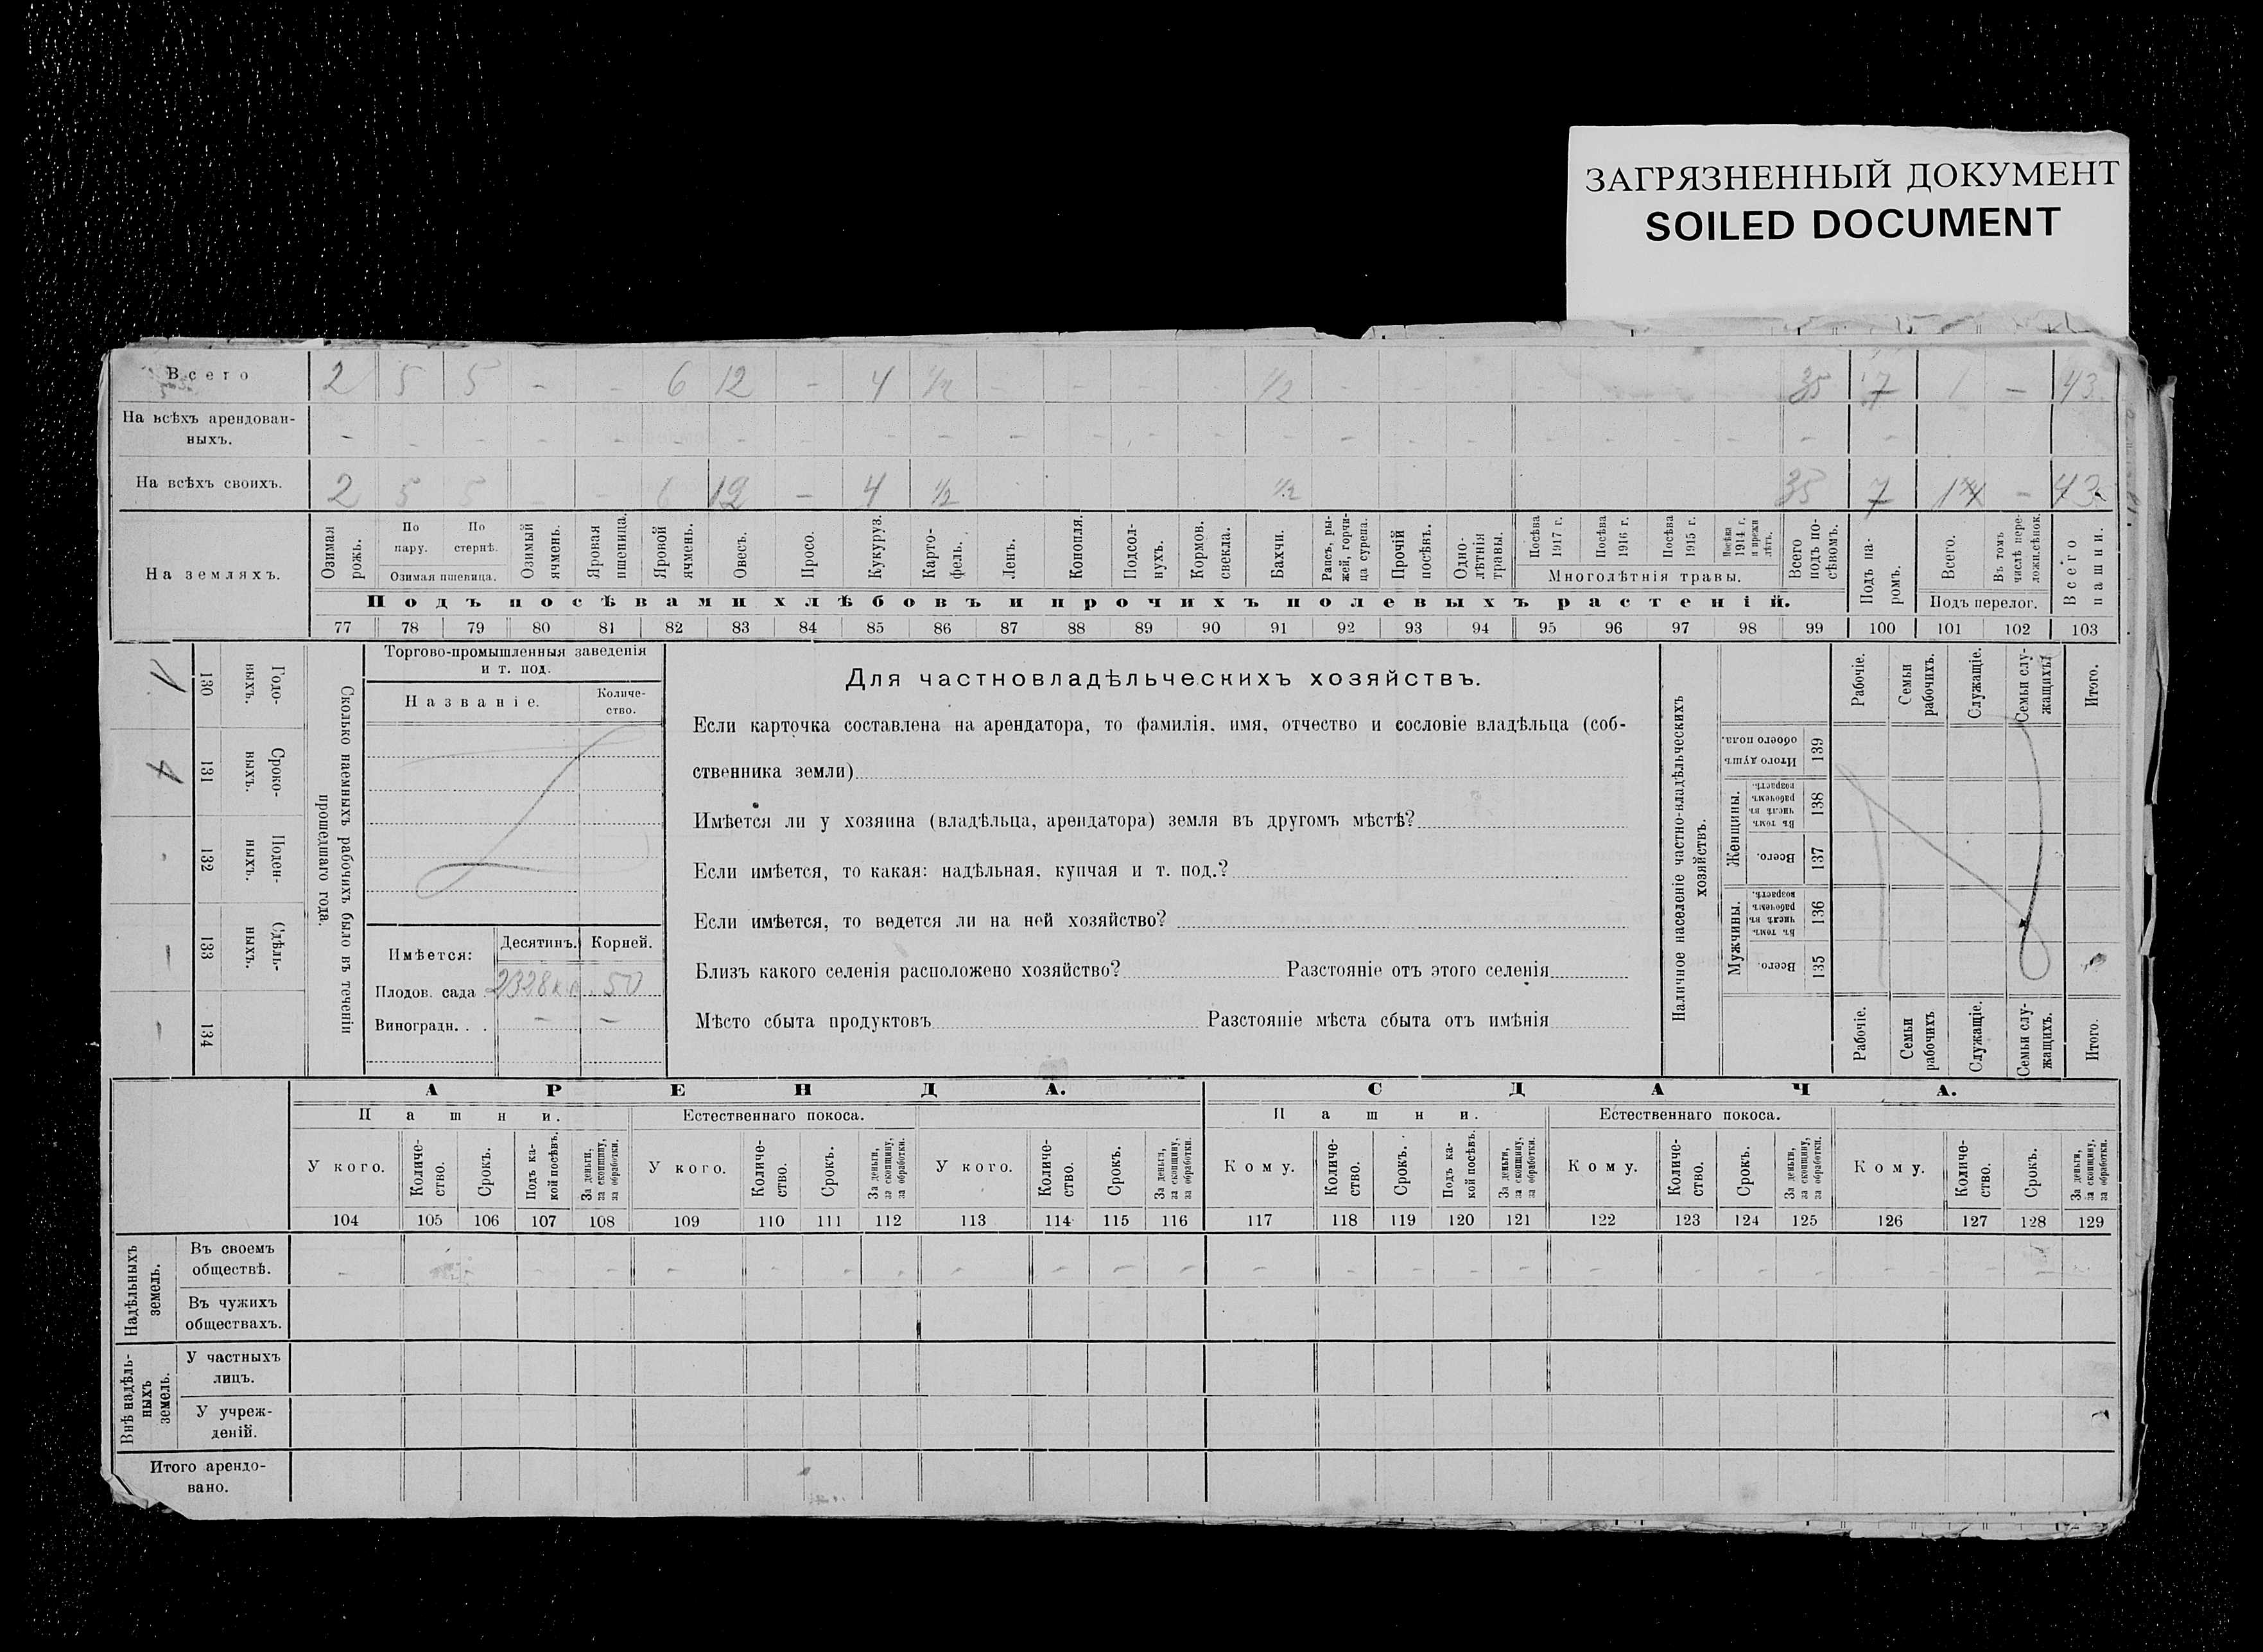 ЗАГРЯЗНЕННЫЙ ДОКУМЕНТ
SOILED DOCUMENT
Всего 2 5 5 - 6 12 - 4 1/2 - - - - 1/2 - - - - - - 35 7 1 - 43
На всѣхъ арендован-
ныхъ. - - - - - - - - - - - - - - - - - - - - - - - -
На всѣхъ своихъ. 2 5 5 - - 6 12 - 4 1/2 1/2 35 7 1 - 43
На земляхъ.
Озимая рожь.
По пару.
По стернѣ.
Озимая пшеница.
Озимый ячмень.
Яровая пшеница.
Яровой ячмень.
Овесъ.
Просо.
Кукуруз.
Карто-
фель.
Ленъ.
Конопля.
Подсол-
нухъ.
Кормов.
свекла.
Бахчи.
Рапсъ, ры-
жей, горчи-
ца сурепа.
Прочій посѣвъ.
Одно-
лѣтнія травы.
Посѣва 1917 г.
Посѣва 1916 г.
Посѣва 1915 г.
Посѣва 1914 г. и прежн лѣтъ.
Многолѣтнія травы.
Всего подъ по-
сѣвомъ.
Подъ па-
ромъ.
Всего.
Въ томъ числѣ пере-
ложн.сѣнок.
Подъ перелог.
Всего пашни.
Подъ посѣвами хлѣбовъ и прочихъ полевыхъ растеній.
77 78 79 80 81 82 83 84 85 86 87 88 89 90 91 92 93 94 95 96 97 98 99 100 101 102 103
1 130 Годо-
ныхъ.
4 131 Сроко-
ныхъ.
132 Поден-
ныхъ.
- 133 Сдѣль-
ныхъ.
- 134
Сколько наемныхъ рабочихъ было въ теченіи
прошедшаго года.
Торгово-промышленныя заведенія
и т. под.
Названіе.
Количе-
ство.
Имѣется:
Десятинъ.
Корней.
Плодов. сада 2328 к.с. 50
Виноградн. . . - -
Для частновладѣльческихъ хозяйствъ.
Если карточка составлена на арендатора, то фамилія, имя, отчество и сословіе владѣльца (соб-
ственника земли)
Имѣется ли у хозяина (владѣльца, арендатора) земля въ другомъ мѣстѣ?
Если имѣется, то какая: надѣльная, купчая и т. под.?
Если имѣется, то ведется ли на ней хозяйство?
Близъ какого селенія расположено хозяйство? Разстояніе отъ этого селенія
Мѣсто сбыта продуктовъ Разстояніе мѣста сбыта отъ имѣнія
Наличное населеніе частно-владѣльческихъ
хозяйствъ.
Рабочіе.
Семьи рабочихъ.
Служащіе.
Семьи слу-
жащихъ.
Итого.
Итого душъ обоего пола. 139
Женщины.
Въ томъ числѣ въ рабочемъ возрастѣ. 138
Всего. 137
Мужчины.
Въ томъ числѣ въ рабочемъ возрастѣ. 136
Всего. 135
Рабочіе.
Семьи рабочихъ
Служащіе.
Семьи слу-
жащихъ.
Итого.
АРЕНДА. СДАЧА.
Пашни. Естественнаго покоса. Пашни. Естественнаго покоса.
У кого.
Количе-
ство.
Срокъ.
Подъ ка-
кой посѣвъ.
За деньги,
за скопщину,
за обработки.
У кого.
Количе-
ство.
Срокъ.
За деньги,
за скопщину,
за обработки.
У кого.
Количе-
ство.
Срокъ.
За деньги,
за скопщину,
за обработки.
Кому.
Количе-
ство.
Срокъ.
Подъ ка-
кой посѣвъ.
За деньги,
за скопщину,
за обработки.
Кому.
Количе-
ство.
Срокъ.
За деньги,
за скопщину,
за обработки.
Кому.
Количе-
ство.
Срокъ.
За деньги,
за скопщину,
за обработки.
104 105 106 107 108 109 110 111 112 113 114 115 116 117 118 119 120 121 122 123 124 125 126 127 128 129
Надѣльныхъ
земель.
Въ своемъ
обществѣ.
Въ чужихъ
обществахъ.
Внѣ надѣль-
ныхъ
земель.
У частныхъ
лицъ.
У учреж-
деній.
Итого арендо-
вано.